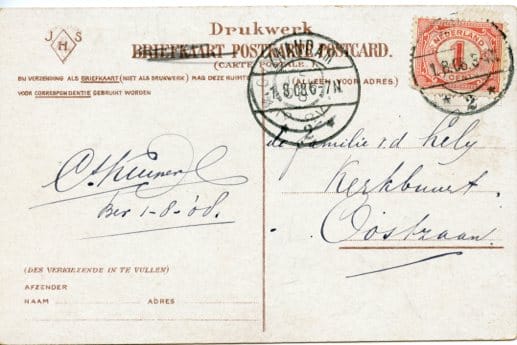 J S
H
Drukwerk
BRIEFKAART POSTKARTE POSTCARD.
(CARTE POSTALE)
BIJ VERZENDING ALS BRIEFKAART (NIET ALS DRUKWERK) MAG DEZE RUIMTE
VOOR CORRESPONDENTIE GEBRUIKT WORDEN
(ALLEEN VOOR ADRES.)
NEDERLAND
1
CENT
1.8.08.6-7N
2
2
de familie v.d. Kely
Kerkbuurt.
Oostzaan.
1-8-'08.
(DES VERKIEZENDE IN TE VULLEN)
AFZENDER
NAAM
ADRES